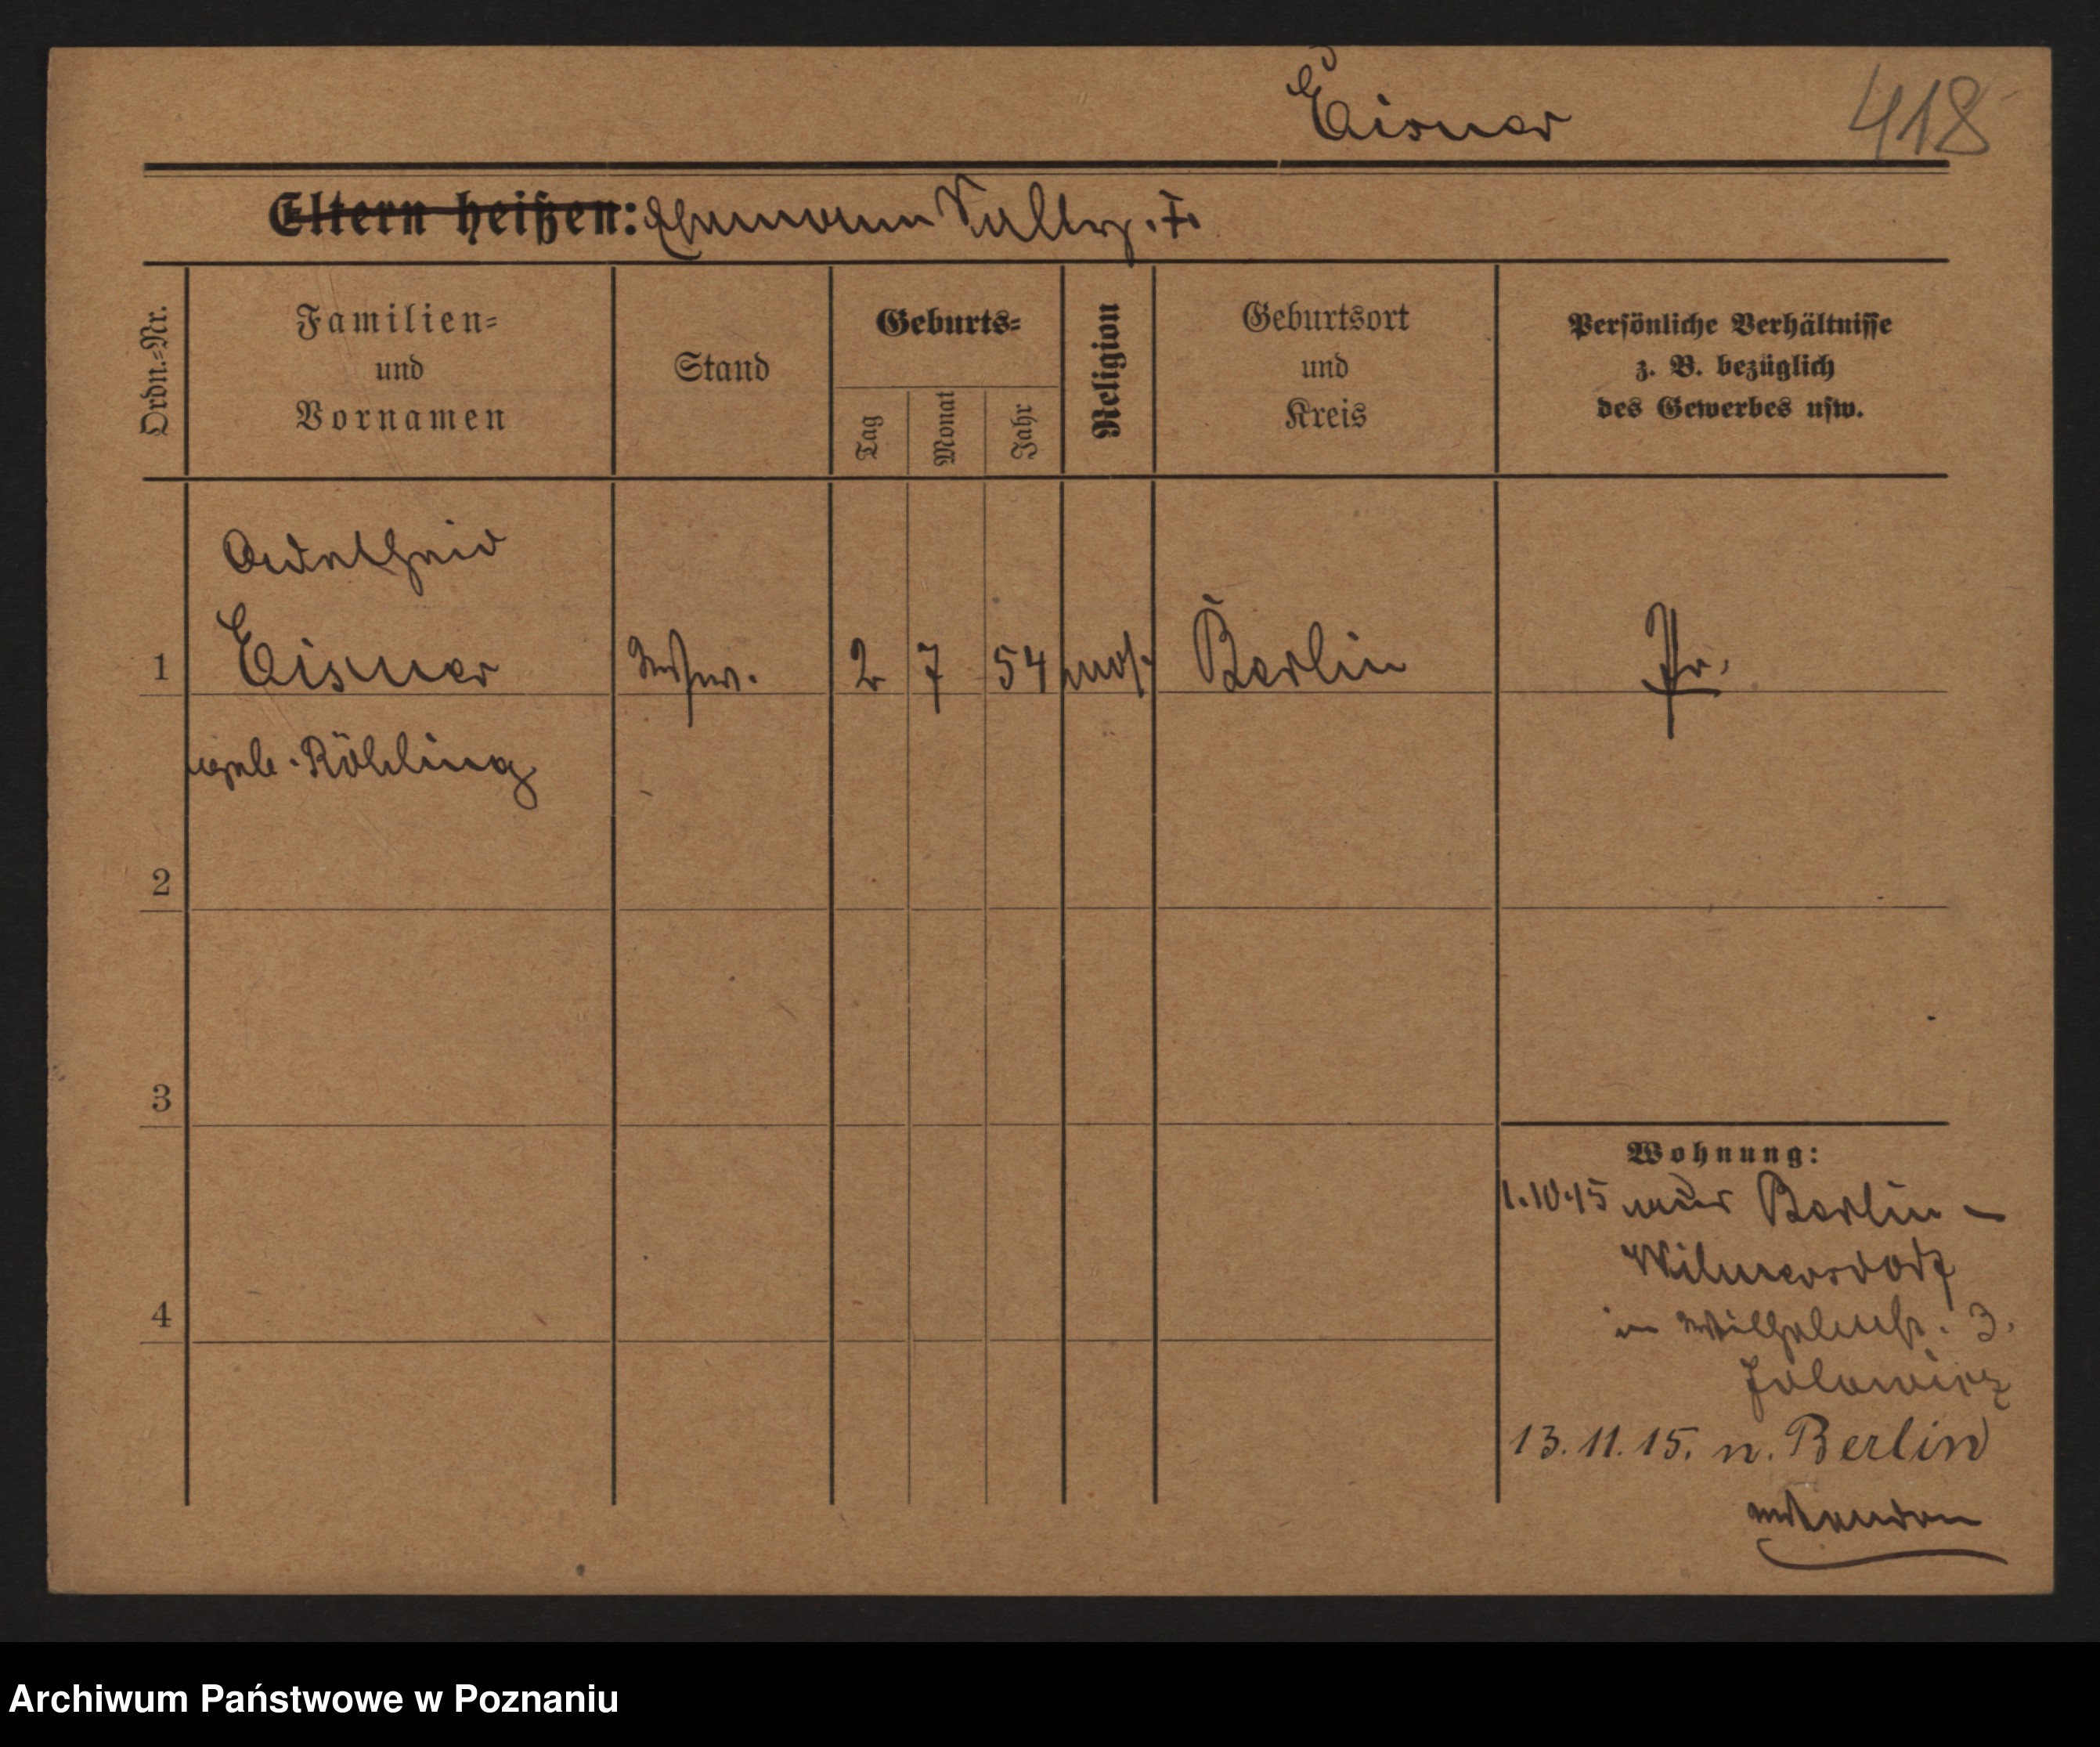 Eisner 418
Eltern heißen: Ehemann Sallÿ. †.
Ordn.-Nr.
Familien-
und
Vornamen
Stand
Geburts-
Tag
Monat
Jahr
Religion
Geburtsort
und
Kreis
Persönliche Verhältnisse
z. B. bezüglich
des Gewerbes usw.
Adelheid
1 Eisner Witwe. 2 7 54 mos. Berlin Pr.
geb. Röhling
2
3
4
Wohnung:
1.10.15 aus Berlin-
Wilmersdorf
in Wilhelmstr. 3.
Jolowicz
13.11.15. n. Berlin
Archiwum Państwowe w Poznaniu